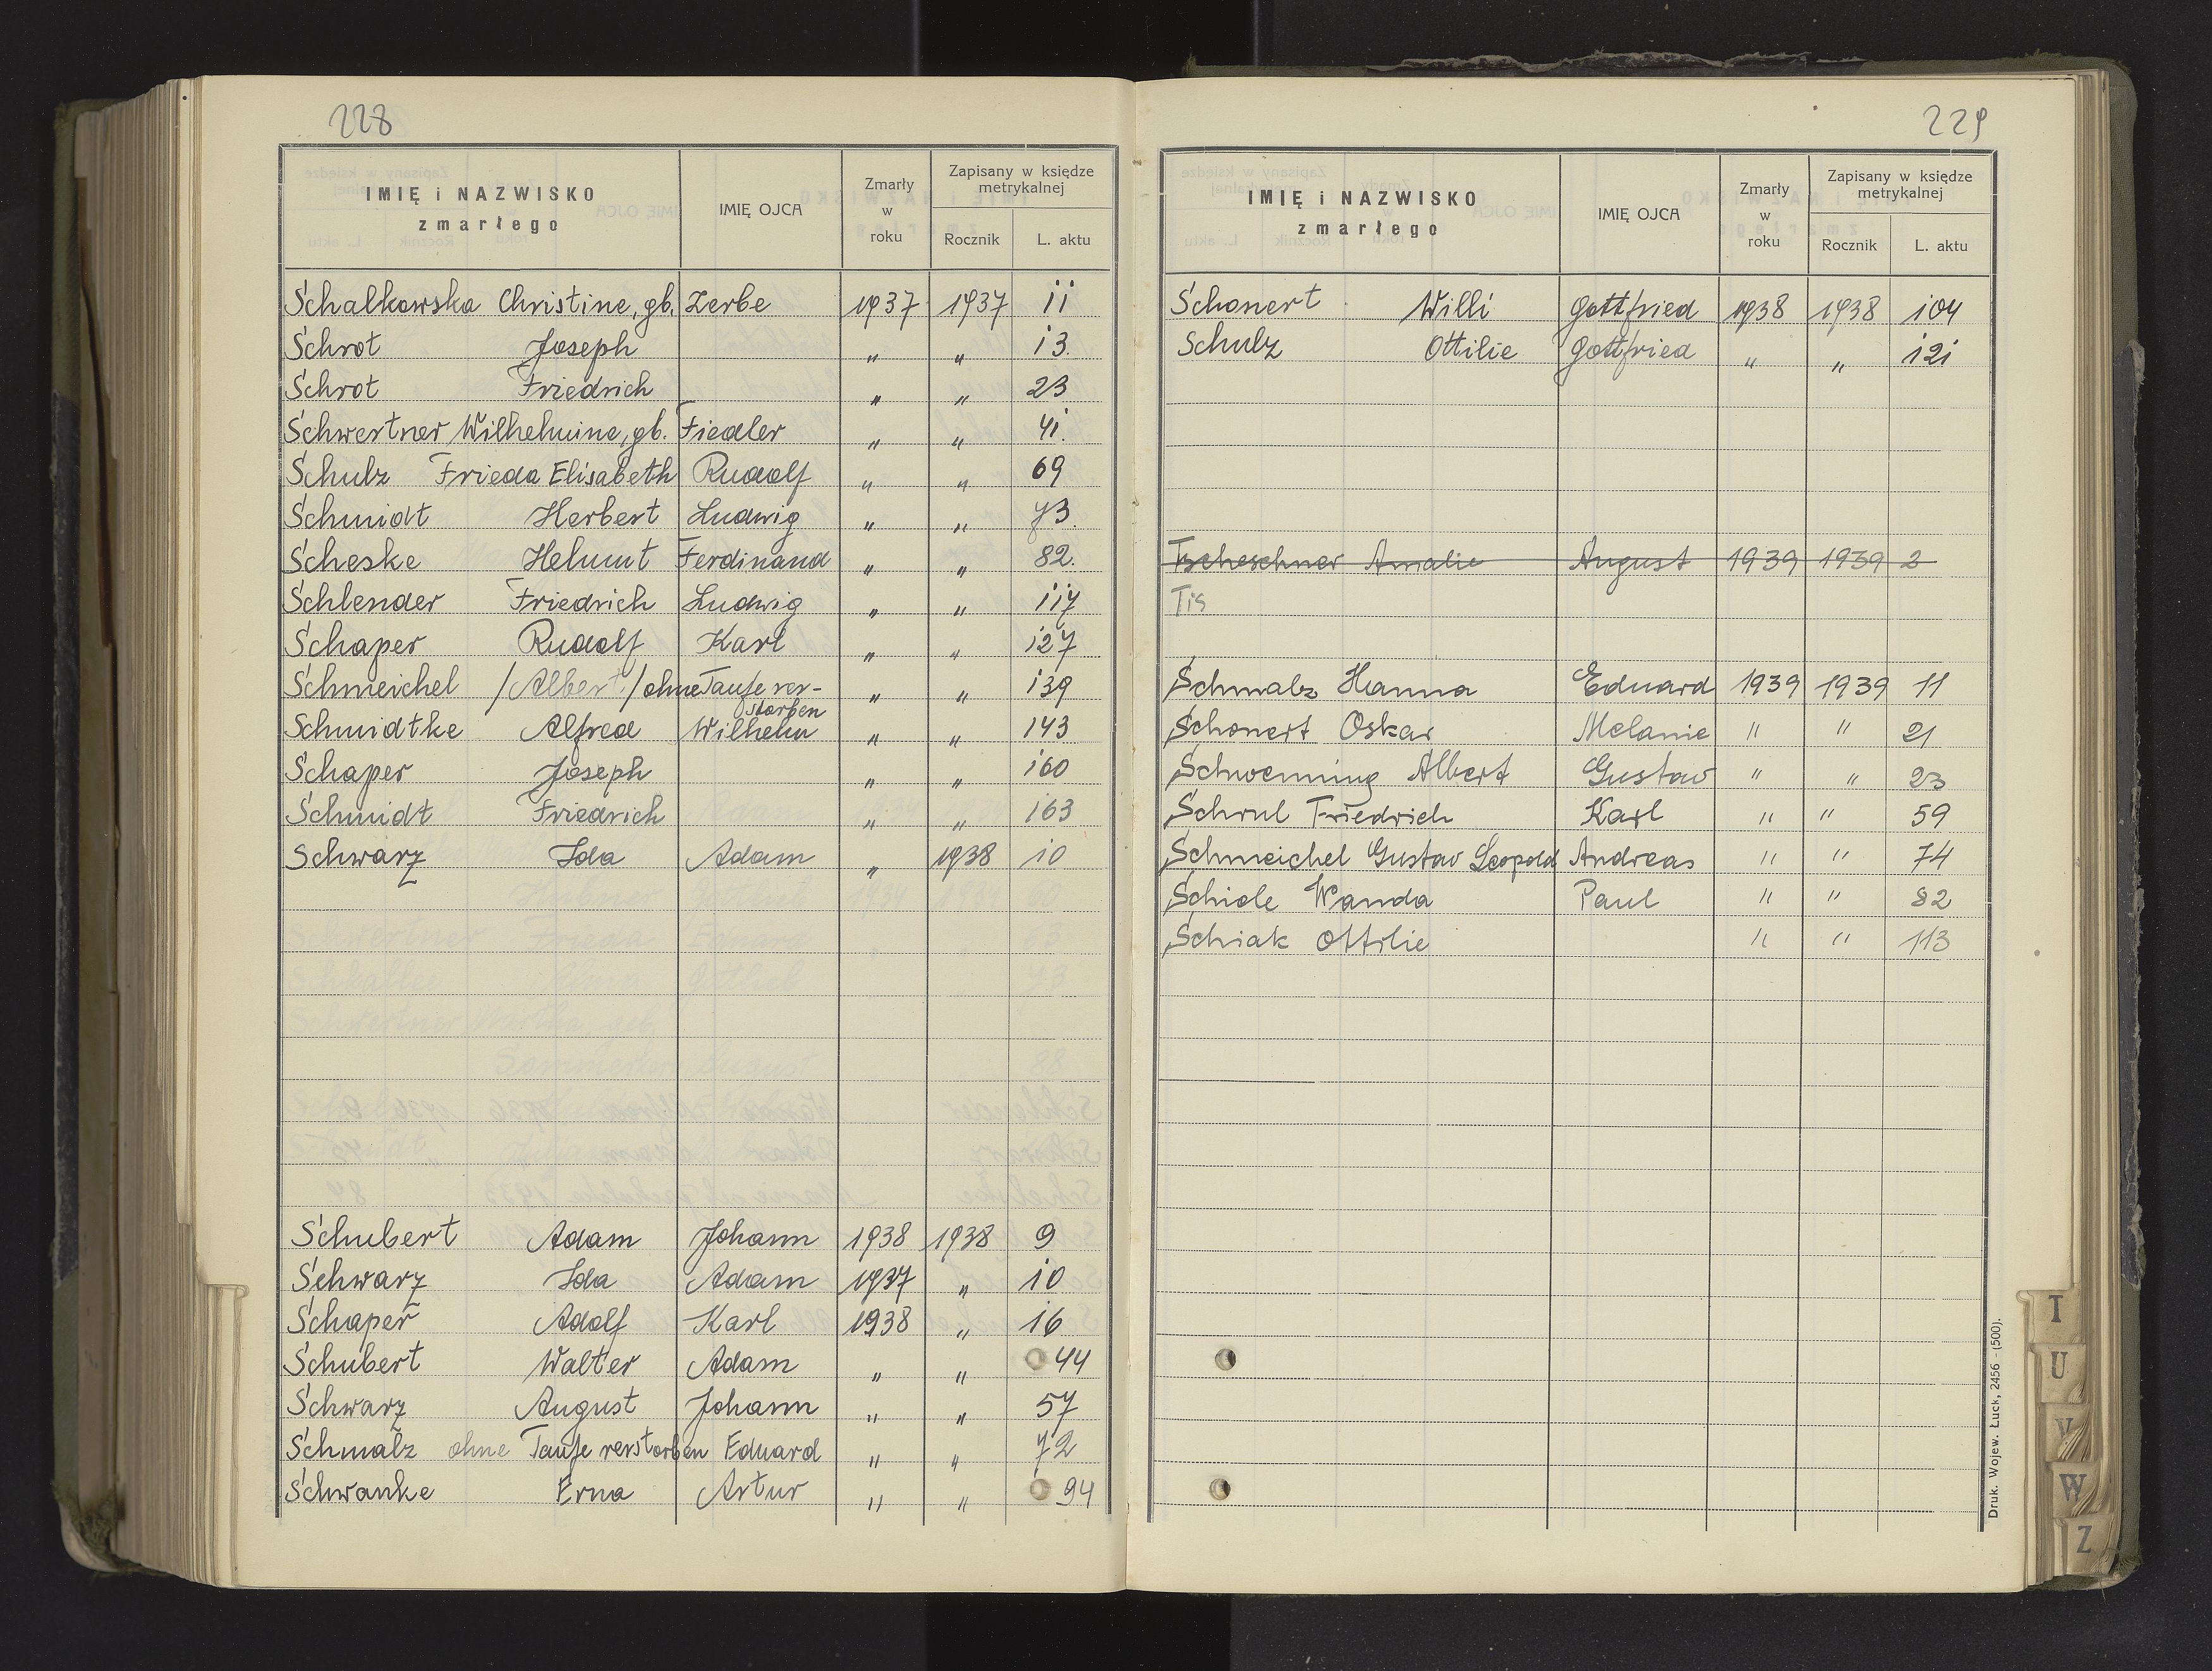 228
IMIĘ i NAZWISKO zmarłego IMIĘ OJCA Zmarły w roku Zapisany w księdze metrykalnej Rocznik L. aktu
Schalkowska Christine, gb. Zerbe 1937 1937 11
Schrot Joseph " " 13.
Schrot Friedrich " " 23
Schwertner Wilhelmine, gb. Fiedler " " 41.
Schulz Frieda Elisabeth Rudolf " " 69
Schmidt Herbert Ludwig " " 73.
Scheske Helmut Ferdinand " " 82.
Schlender Friedrich Ludwig " " 117
Schaper Rudolf Karl " " 127
Schmeichel /Albert/ ohne Taufe ver- " " 139
storben
Schmidtke Alfred Wilhelm " " 143
Schaper Joseph " " 160
Schmidt Friedrich " " 163
Schwarz Ida Adam " 1938 10
Schubert Adam Johann 1938 1938 9
Schwarz Ida Adam 1937 " 10
Schaper Adolf Karl 1938 " 16
Schubert Walter Adam " " 44
Schwarz August Johann " " 57
Schmalz ohne Taufe verstorben Eduard " " 72
Schwanke Erna Artur " " 94
229
IMIĘ i NAZWISKO zmarłego IMIĘ OJCA Zmarły w roku Zapisany w księdze metrykalnej Rocznik L. aktu
Schonert Willi Gottfried 1938 1938 104
Schulz Ottilie Gottfried " " 121
Tscheschner Amalie August 1939 1939 2
Tis
Schmalz Hanna Eduard 1939 1939 11
Schonert Oskar Melanie " " 21
Schwenning Albert Gustaw " " 23
Schrul Friedrich Karl " " 59
Schmeichel Gustav Leopold Andreas " " 74
Schiole Wanda Paul " " 82
Schiak Ottilie " " 113
Druk. Wojew. Łuck, 2456 - (500).
T
U
V
W
Z